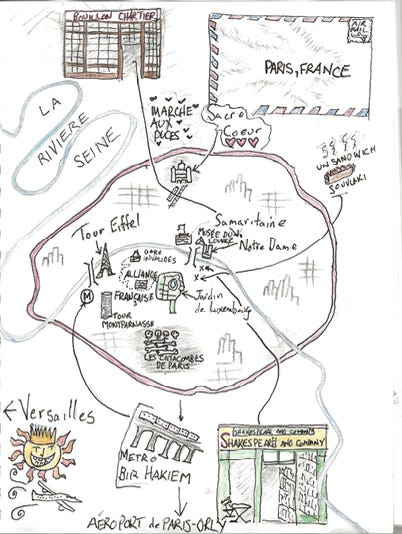 BOUILLON CHARTIER
AIR
MAIL
PARIS, FRANCE
LA
RIVIERE
SEINE
MARCHE
AUX
PUCES
Sacre
Coeur
UN SANDWICH
SOUVLAKI
Tour Eiffel
Samaritaine
MUSÉE DU
LOUVRE
Notre Dame
GARE
INVALIDES
ALLIANCE
FRANÇAISE
M
TOUR
MONTPARNASSE
Jardin
de Luxembourg
LES CATACOMBES
DE PARIS
Versailles
METRO
BIR HAKIEM
SHAKESPEARE AND COMPANY
SHAKESPEARE AND COMPANY
AEROPORT de PARIS-ORLY